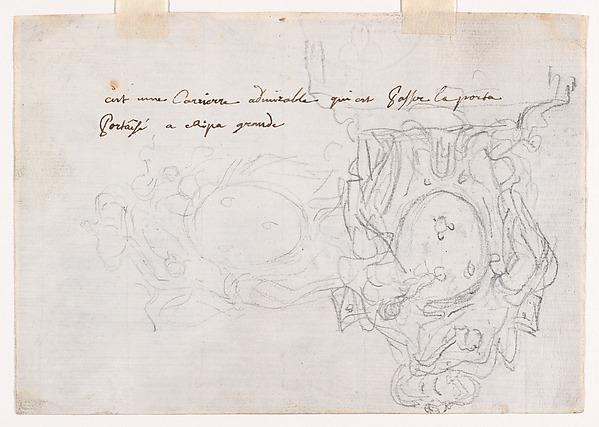 cest une Carrierre admirable qui est Passer la porta
Portaesé a Ripa grande